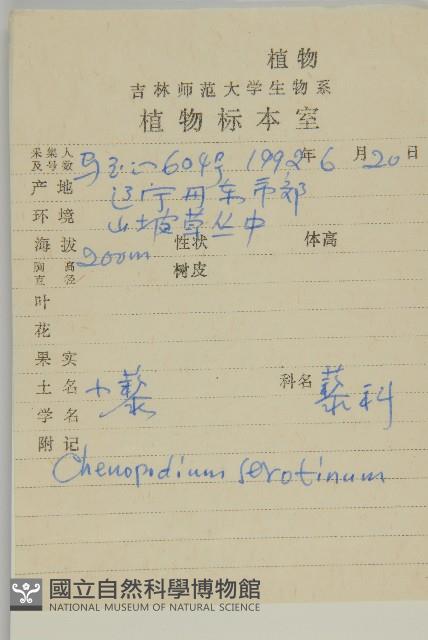 植物
吉林师范大学生物系
植物标本室
采集人及号数 马玉心 604号 1992年6月20日
产地 辽宁丹东市郊
环境 山坡草丛中
海拔 200m 性状 体高
胸高直径 树皮
叶
花
果实
土名 小藜 科名 藜科
学名
附记
Chenopodium serotinum
國立自然科學博物館
NATIONAL MUSEUM OF NATURAL SCIENCE